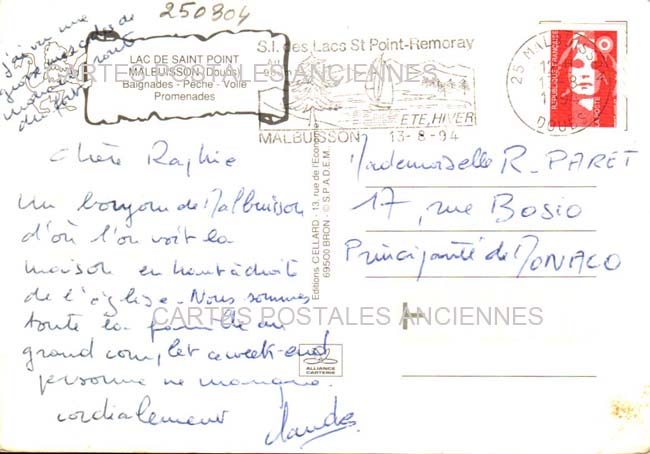 250304
j'ai vu une
du fort
LAC DE SAINT POINT
MALBUISSON (Doubs)
Baignades - Pêche - Voile
Promenades
S.I. des Lacs St Point-Remoray
ETE, HIVER
MALBUISSON 13-8-94
25 MALBUISSON
DOUBS
REPUBLIQUE FRANÇAISE
LA POSTE
CARTES POSTALES ANCIENNES
Chère Raphie
un bonjour de Malbuisson
d'où l'on voit la
maison en haut à droite
de l'église. Nous sommes
toute la famille au
grand complet ce week-end
personne ne manque.
cordialement
Editions CELLARD - 13, rue de l'Economie
69500 BRON - © S.P.A.D.E.M.
Mademoiselle R. PARET
17, rue Bosio
Principauté de MONACO
CARTES POSTALES ANCIENNES
ALLIANCE
CARTERIE